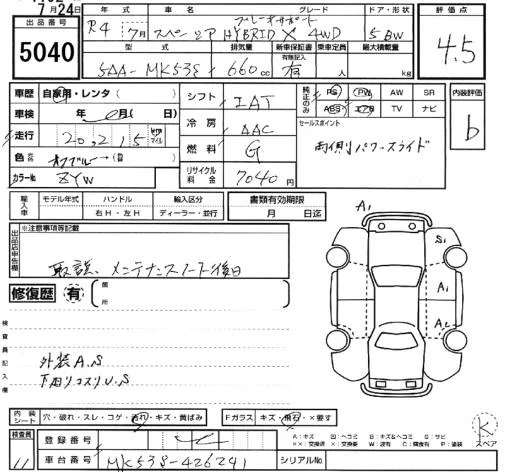 7月24日
出品番号
5040
年式 車名 グレード ドア・形状
R4 7月 スペーシア HYBRID X 4WD 5BW
ブレーキサポート
型式 排気量 新車保証書 乗車定員 最大積載量
5AA-MK53S 660cc 有無記入 有 人 kg
評価点
4.5
車歴 自家用・レンタ( )
車検 年 月( 日)
走行 20,215 km マイル
色 オフブルー→(色 )
カラーNo. ZYW
シフト IAT
冷房 AAC
燃料 G
リサイクル料金 7040円
純正のみ PS PW AW SR
ABS エアB TV ナビ
セールスポイント
両側パワースライド
内装評価
b
輸入車 モデル年式 ハンドル 輸入区分
右H・左H ディーラー・並行
書類有効期限
月 日迄
出品店申告欄
※注意事項等記載
取説、メンテナンスノート後日
修復歴 有 箇所
検査員記入欄
外装A.S
下回りコスリU.S
A1
S1
A1
A2
内装シート 穴・破れ・スレ・コゲ・汚れ・キズ・黄ばみ
Fガラス キズ・飛石・×要す
検査員
11
登録番号
車台番号 MK53S-426241
シリアルNo.
A:キズ U:ヘコミ B:キズ&ヘコミ S:サビ
××:交換済 ×:要交換 W:波有 C:腐食有 P:塗装
K
スペアー